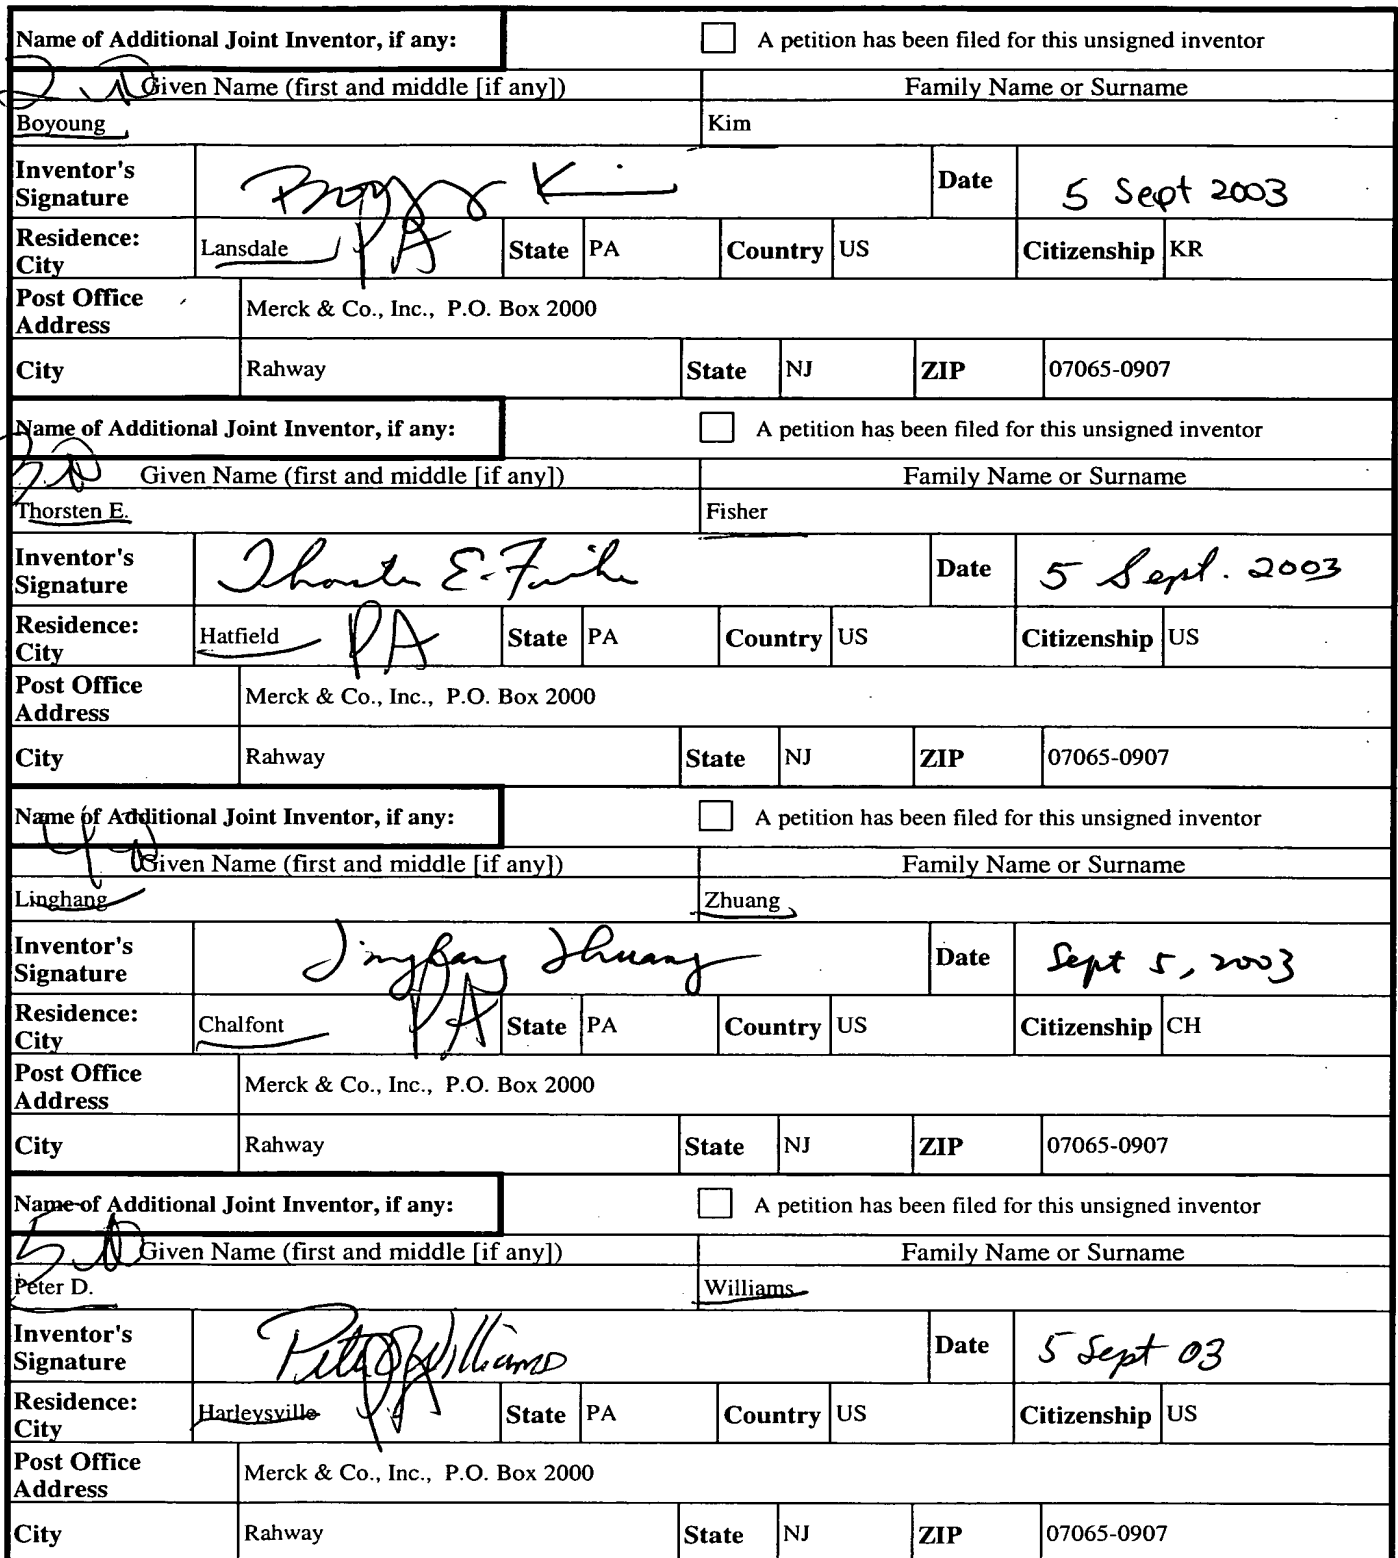 Name of Additional Joint Inventor, if any: A petition has been filed for this unsigned inventor
Given Name (first and middle [if any]) Family Name or Surname
Boyoung Kim
Inventor's Signature Kim Date 5 Sept 2003
Residence: City Lansdale PA State PA Country US Citizenship KR
Post Office Address Merck & Co., Inc., P.O. Box 2000
City Rahway State NJ ZIP 07065-0907
Name of Additional Joint Inventor, if any: A petition has been filed for this unsigned inventor
Given Name (first and middle [if any]) Family Name or Surname
Thorsten E. Fisher
Inventor's Signature Date 5 Sept. 2003
Residence: City Hatfield PA State PA Country US Citizenship US
Post Office Address Merck & Co., Inc., P.O. Box 2000
City Rahway State NJ ZIP 07065-0907
Name of Additional Joint Inventor, if any: A petition has been filed for this unsigned inventor
Given Name (first and middle [if any]) Family Name or Surname
Linghang Zhuang
Inventor's Signature Zhuang Date Sept 5, 2003
Residence: City Chalfont PA State PA Country US Citizenship CH
Post Office Address Merck & Co., Inc., P.O. Box 2000
City Rahway State NJ ZIP 07065-0907
Name of Additional Joint Inventor, if any: A petition has been filed for this unsigned inventor
Given Name (first and middle [if any]) Family Name or Surname
Peter D. Williams
Inventor's Signature Peter D Williams Date 5 Sept 03
Residence: City Harleysville PA State PA Country US Citizenship US
Post Office Address Merck & Co., Inc., P.O. Box 2000
City Rahway State NJ ZIP 07065-0907